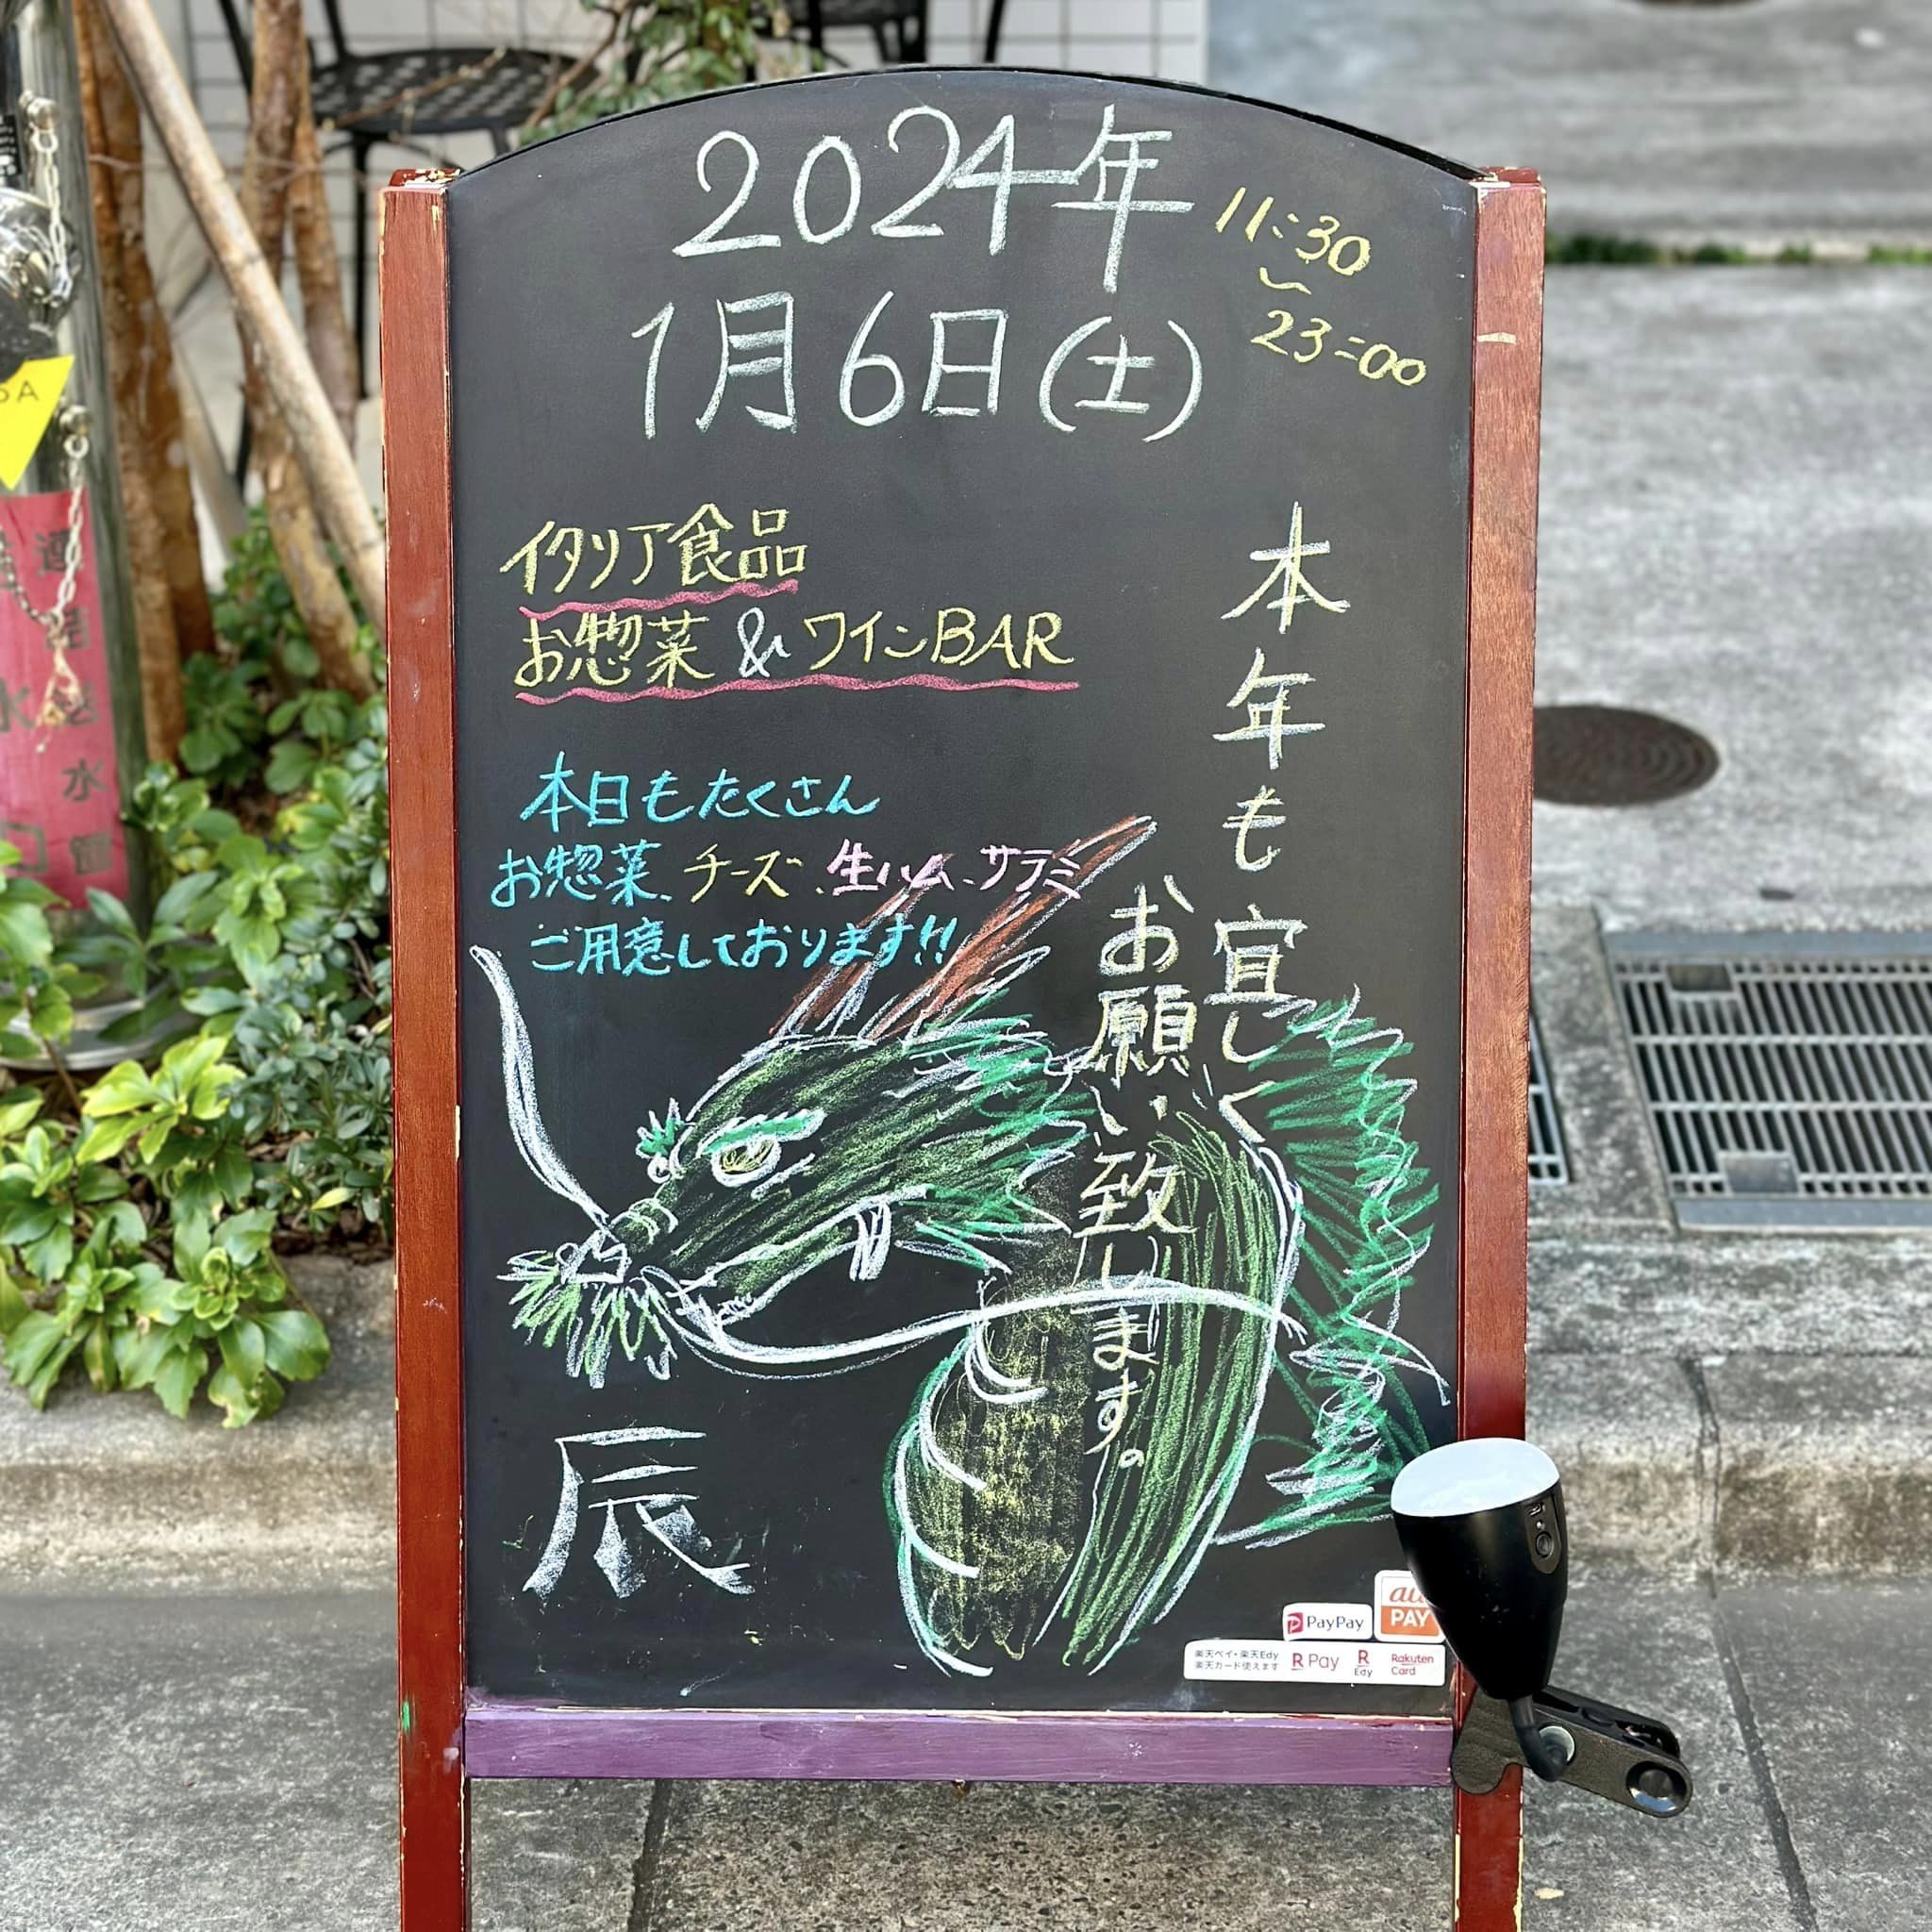 2024年
1月6日(土)
11:30
〜
23:00
イタリア食品
お惣菜 & ワインBAR
本日もたくさん
お惣菜、チーズ、生ハム、サラミ
ご用意しております!!
本年も宜しく
お願い致します。
辰
PayPay
au PAY
楽天ペイ・楽天Edy
楽天カード使えます
R Pay
R Edy
Rakuten Card